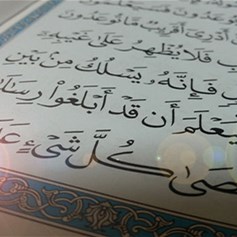 أَدْرِىٓ أَقَرِيبٌ مَّا تُوعَدُونَ
فَلَا يُظْهِرُ عَلَىٰ غَيْبِهِۦٓ
فَإِنَّهُۥ يَسْلُكُ مِنۢ بَيْنِ
لِّيَعْلَمَ أَن قَدْ أَبْلَغُوا۟
كُلَّ شَىْءٍ